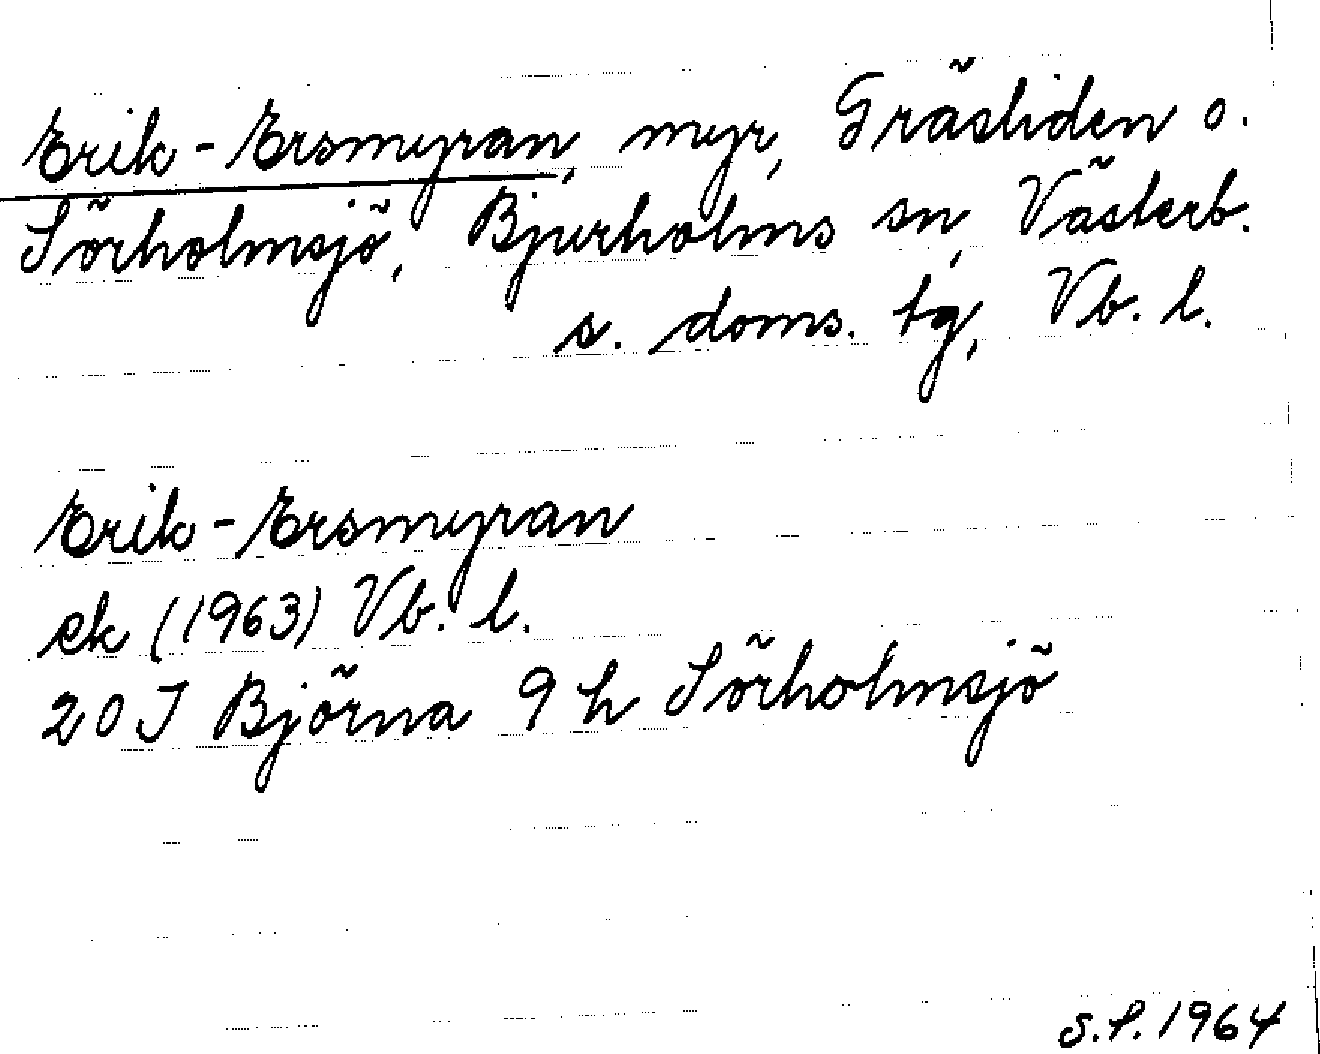 Erik-Ersmyran, myr, Gräsliden o.
Sörholmsjö, Bjurholms sn, Västerb.
s. doms. tg, Vb. l.
Erik-Ersmyran
ek (1963) Vb. l.
20 J Björna 9 h Sörholmsjö
S.P. 1964